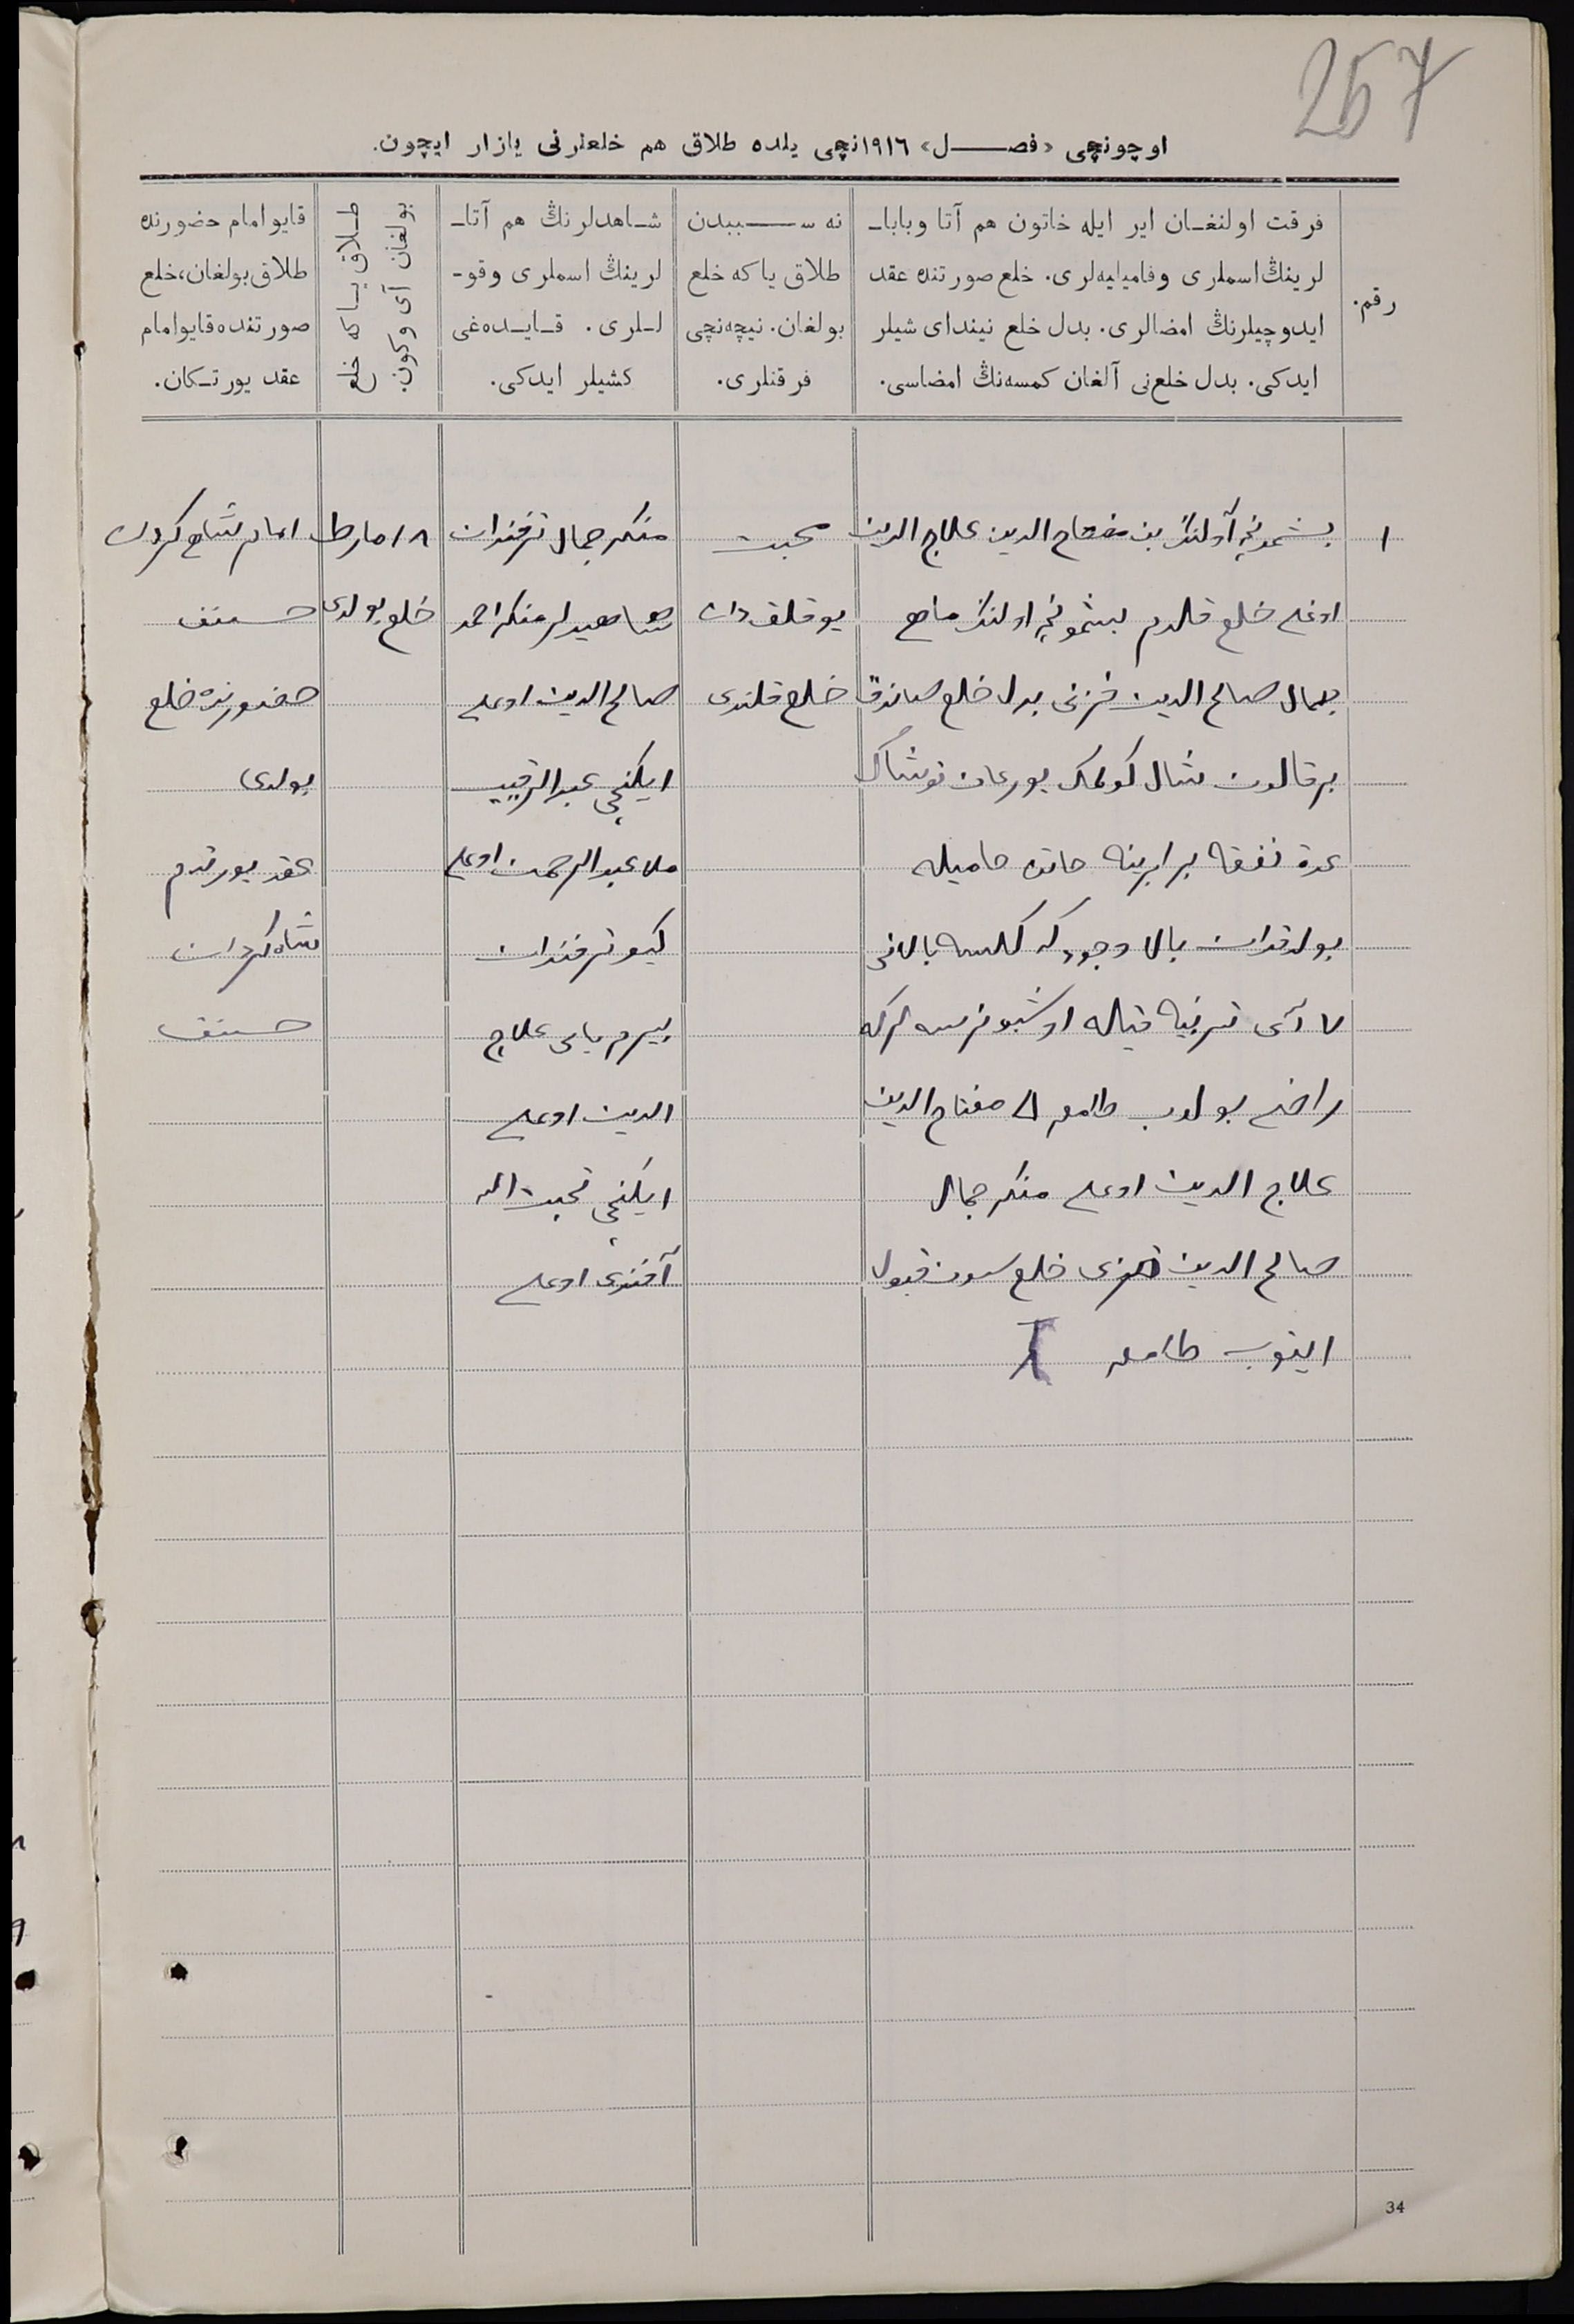 257
اوچونچی «فصـــل» ١٩١٦نچی یلده طلاق هم خلعلرنی یازار ایچون.
رقم.
فرقت اولنغـان ایر ایله خاتون هم آتا وبابا۔
لرینڭ اسملری وفامیلیه‌لری. خلع صورتنده عقد
ایدوچیلرنڭ امضالری. بدل خلع نیندای شیلر
ایدکی. بدل خلع‌نی آلغان کمسه‌نڭ امضاسی.
نه ســـببدن
طلاق یاکه خلع
بولغان. نیچه‌نچی
فرقتلری.
شـاهدلرنڭ هم آتا۔
لرینڭ اسملری وقو۔
لـلری. قـایـده‌غی
کشیلر ایدکی.
طـلاق یـا که خلع
بولغان آی وکون.
قایو امام حضورنده
طلاق بولغان، خلع
صورتنده قایو امام
عقد یورتـکان.
١
مفتاح الدین علاج الدین
اوغلی خلع قلدم
جمال صالح الدین قزنی بدل خلع صاندق
بر قالون شال کولمک یورغان توشاک
عدة نفقه برابرینه حاتن حامیله
بولدقدان بالا وجودکه کلسه بالانی
٧ آی تربیه قیله اوشبو نرسه لرکه
راضی بولوب طامعه مفتاح الدین
علاج الدین اوغلی منکر جمال
صالح الدین قزی خلع سوزن قبول
ایتوب طامعه
محبت
یوقلقدان
خلع قلندی
منکر جمال طرفندان
شاهیدلر منکر احمد
صالح الدین اوغلی
ایکنچی عبدالرقیب
ملا عبدالرحمن اوغلی
کیو طرفندان
بیرم بای علاج
الدین اوغلی
ایکنچی محبت الله
آفندی اوغلی
١٨ مارط
خلع بولدی
امام شاه کردان
حسنف
حضورنده خلع
بولدی
عقد یورتدم
شاه کردان
حسنف
34